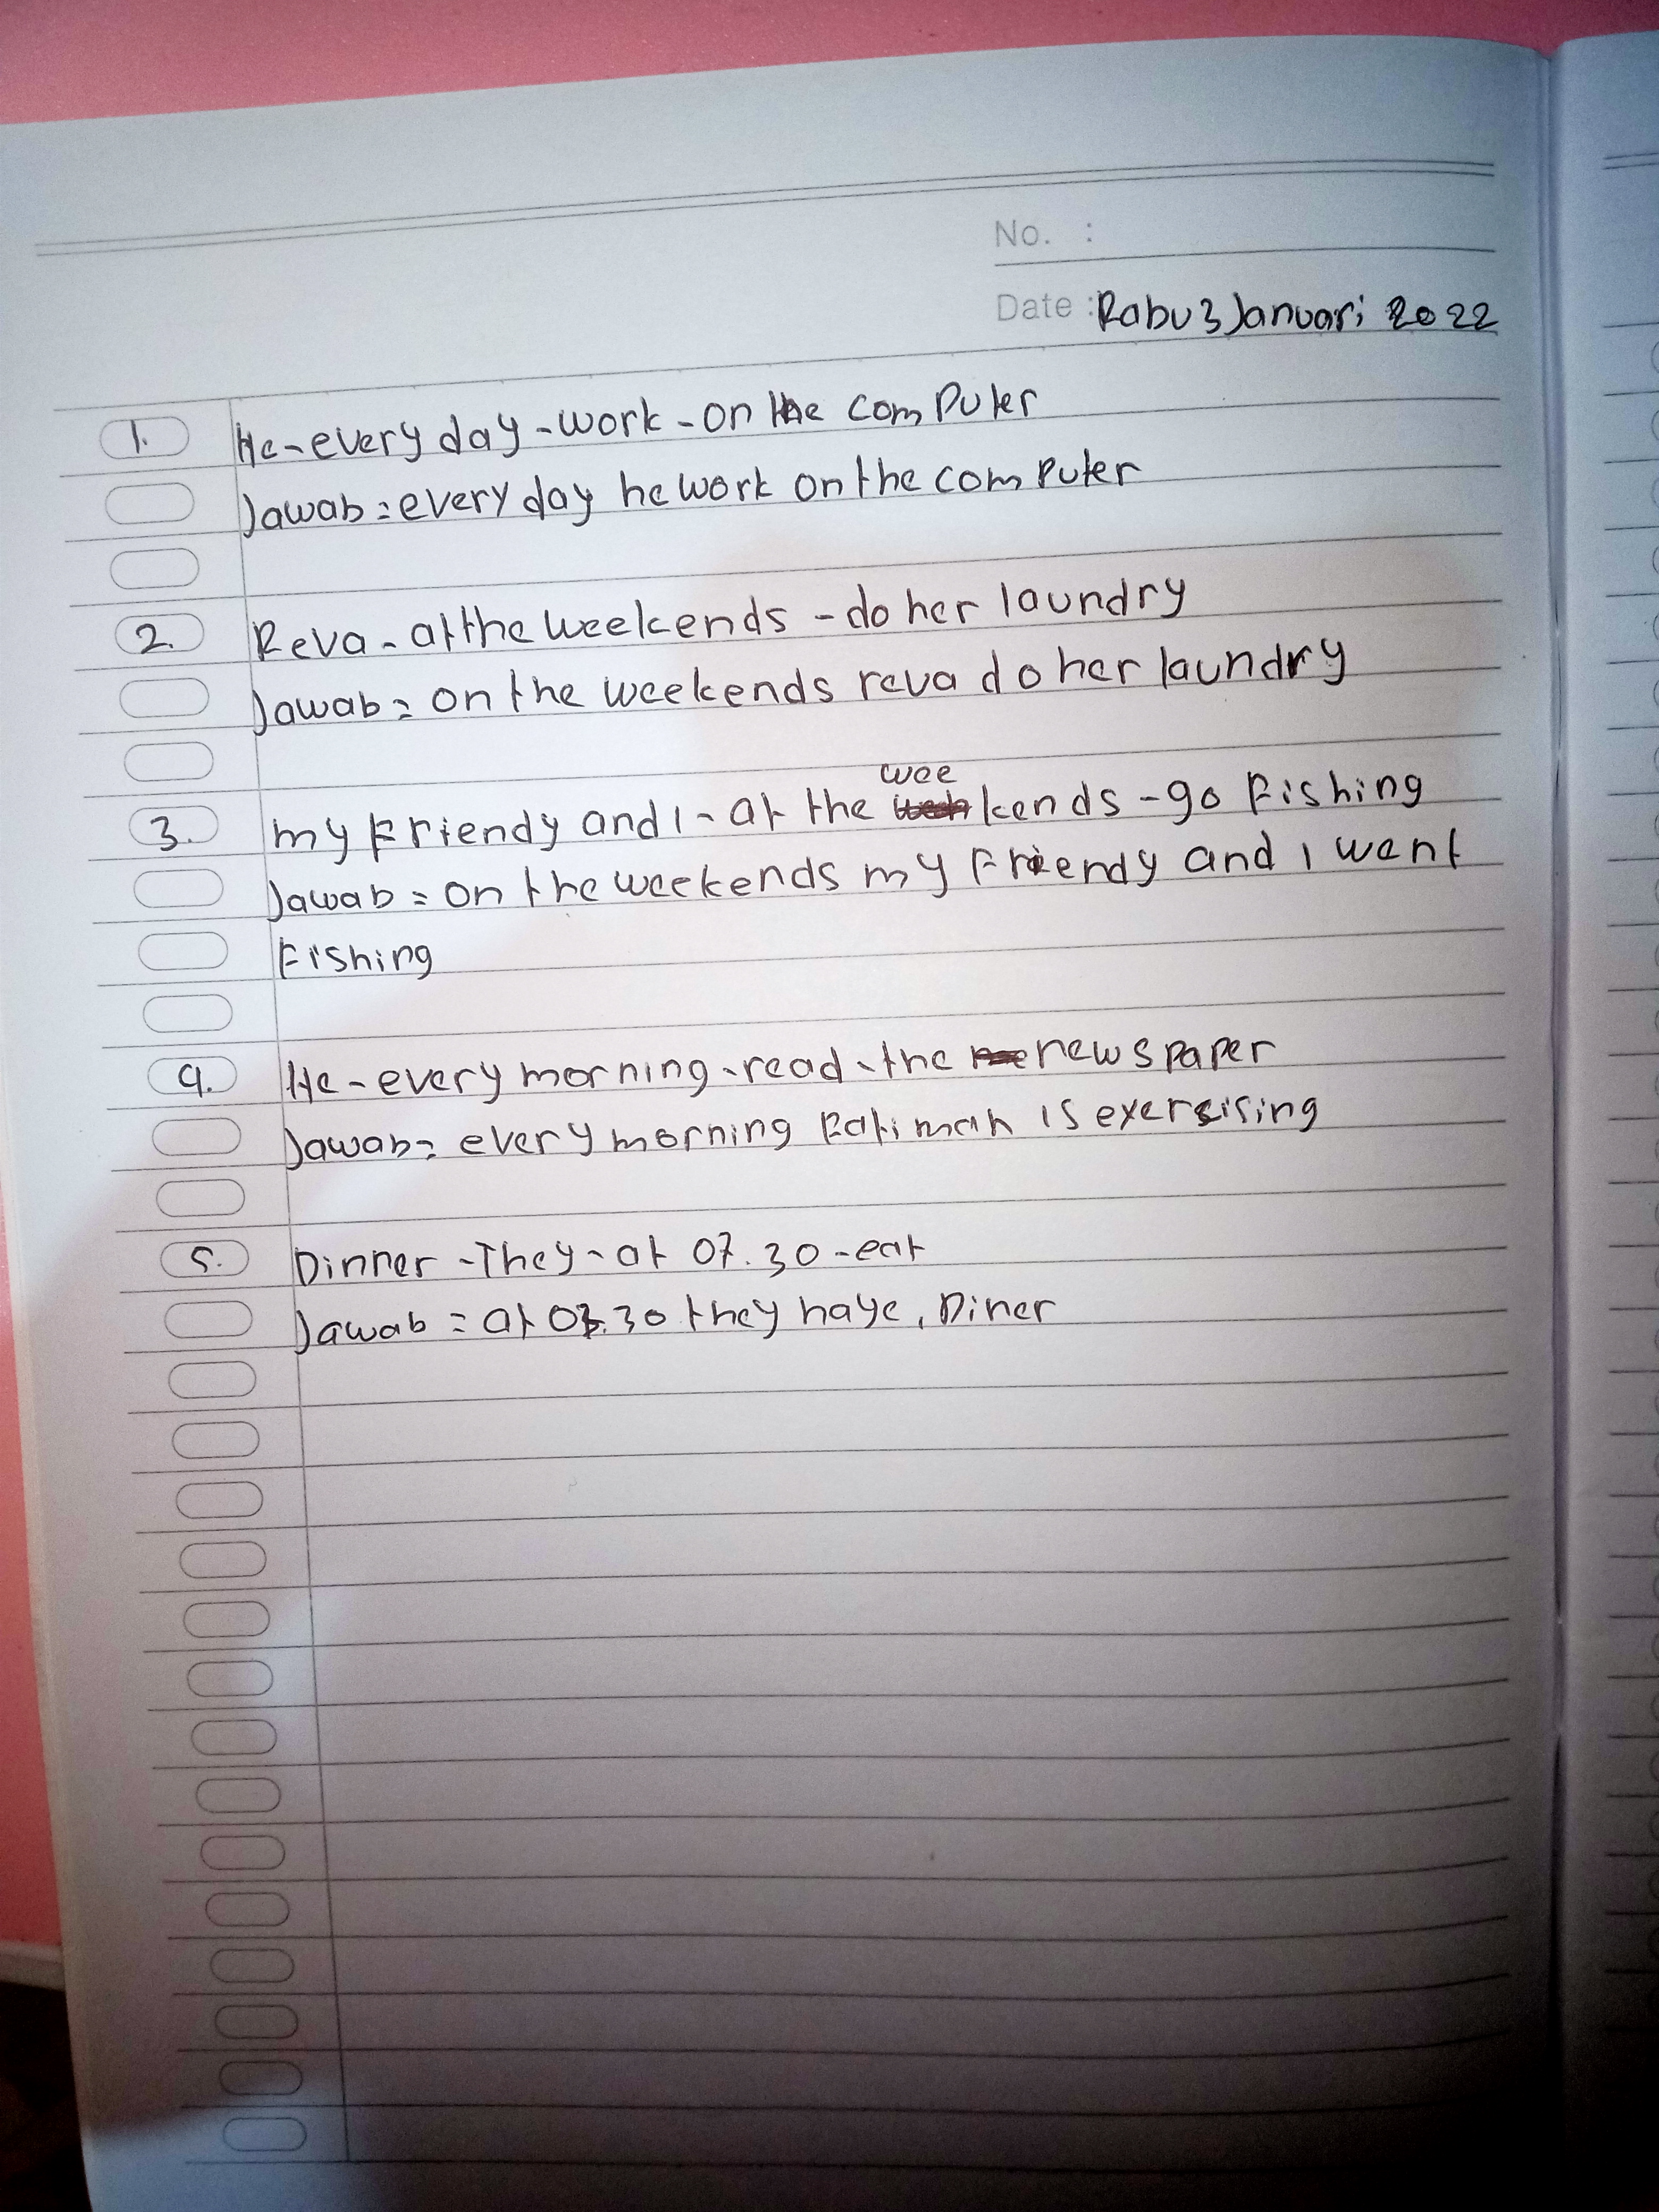 No. :
Date : Rabu 3 Januari 2022
1. He - every day - work - on the computer
Jawab = every day he work on the computer
2. Reva - at the weekends - do her laundry
Jawab = on the weekends reva do her laundry
wee
3. my Friendy and I - at the kends - go Fishing
Jawab = on the weekends my Friendy and I went
Fishing
4. He - every morning - read - the newspaper
Jawab = every morning Fatimah is exersising
5. Dinner - They - at 07.30 - eat
Jawab = at 07.30 they haye, Diner